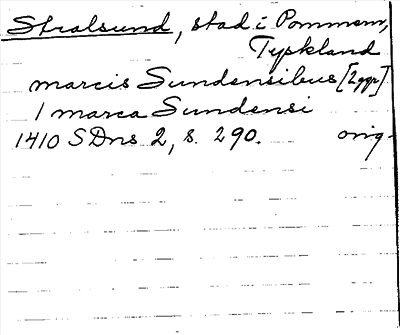 Stralsund, stad i Pommern,
Tyskland
marcis Sundensibus [2ggr]
1 marca Sundensi
1410 SDns 2, s. 290. orig.